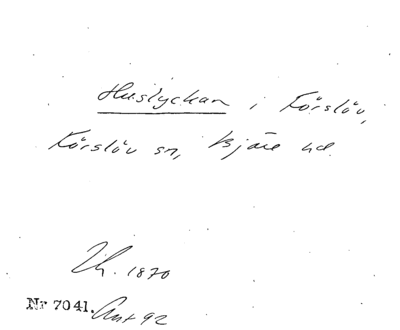 Huslyckan i Förslöv,
Förslöv sn, Bjäre hd.
Lh. 1870
Nr 7041. Ant 92